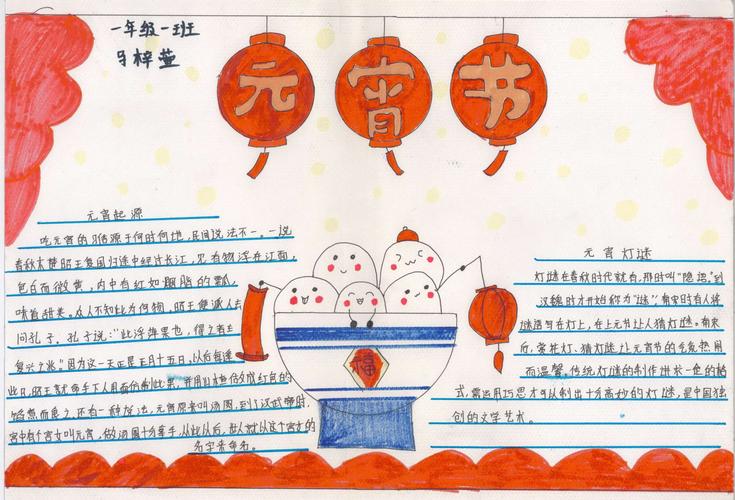 一年级一班
马梓萱
元宵节
元宵起源
吃元宵的习俗源于何时何地,民间说法不一。一说
春秋末楚昭王复国归途中经过长江,见有物浮在江面,
色白而微黄,内中有红如胭脂的瓤,
味道甜美。众人不知此为何物,昭王便派人去
问孔子。孔子说:"此浮萍果也,得之者主
复兴之兆。"因为这一天正是正月十五日,以后每逢
此日,昭王就命手下人用面仿制此果,并用山楂做成红色的
馅煮而食之。还有一种说法,元宵原来叫汤圆,到了汉武帝时,
宫中有个宫女叫元宵,做汤圆十分拿手,从此以后,世人就以这个宫女的
名字来命名。
福
元宵灯谜
灯谜在春秋时代就有,那时叫"隐语",到
汉魏时才开始称为"谜",南宋时有人将
谜语写在灯上,在上元节让人猜灯谜。
后,赏花灯、猜灯谜让元宵节的气氛热闹
而温馨。传统灯谜的制作
式,需运用巧思才可以制出十分高妙的灯谜,是中国独
创的文学艺术。